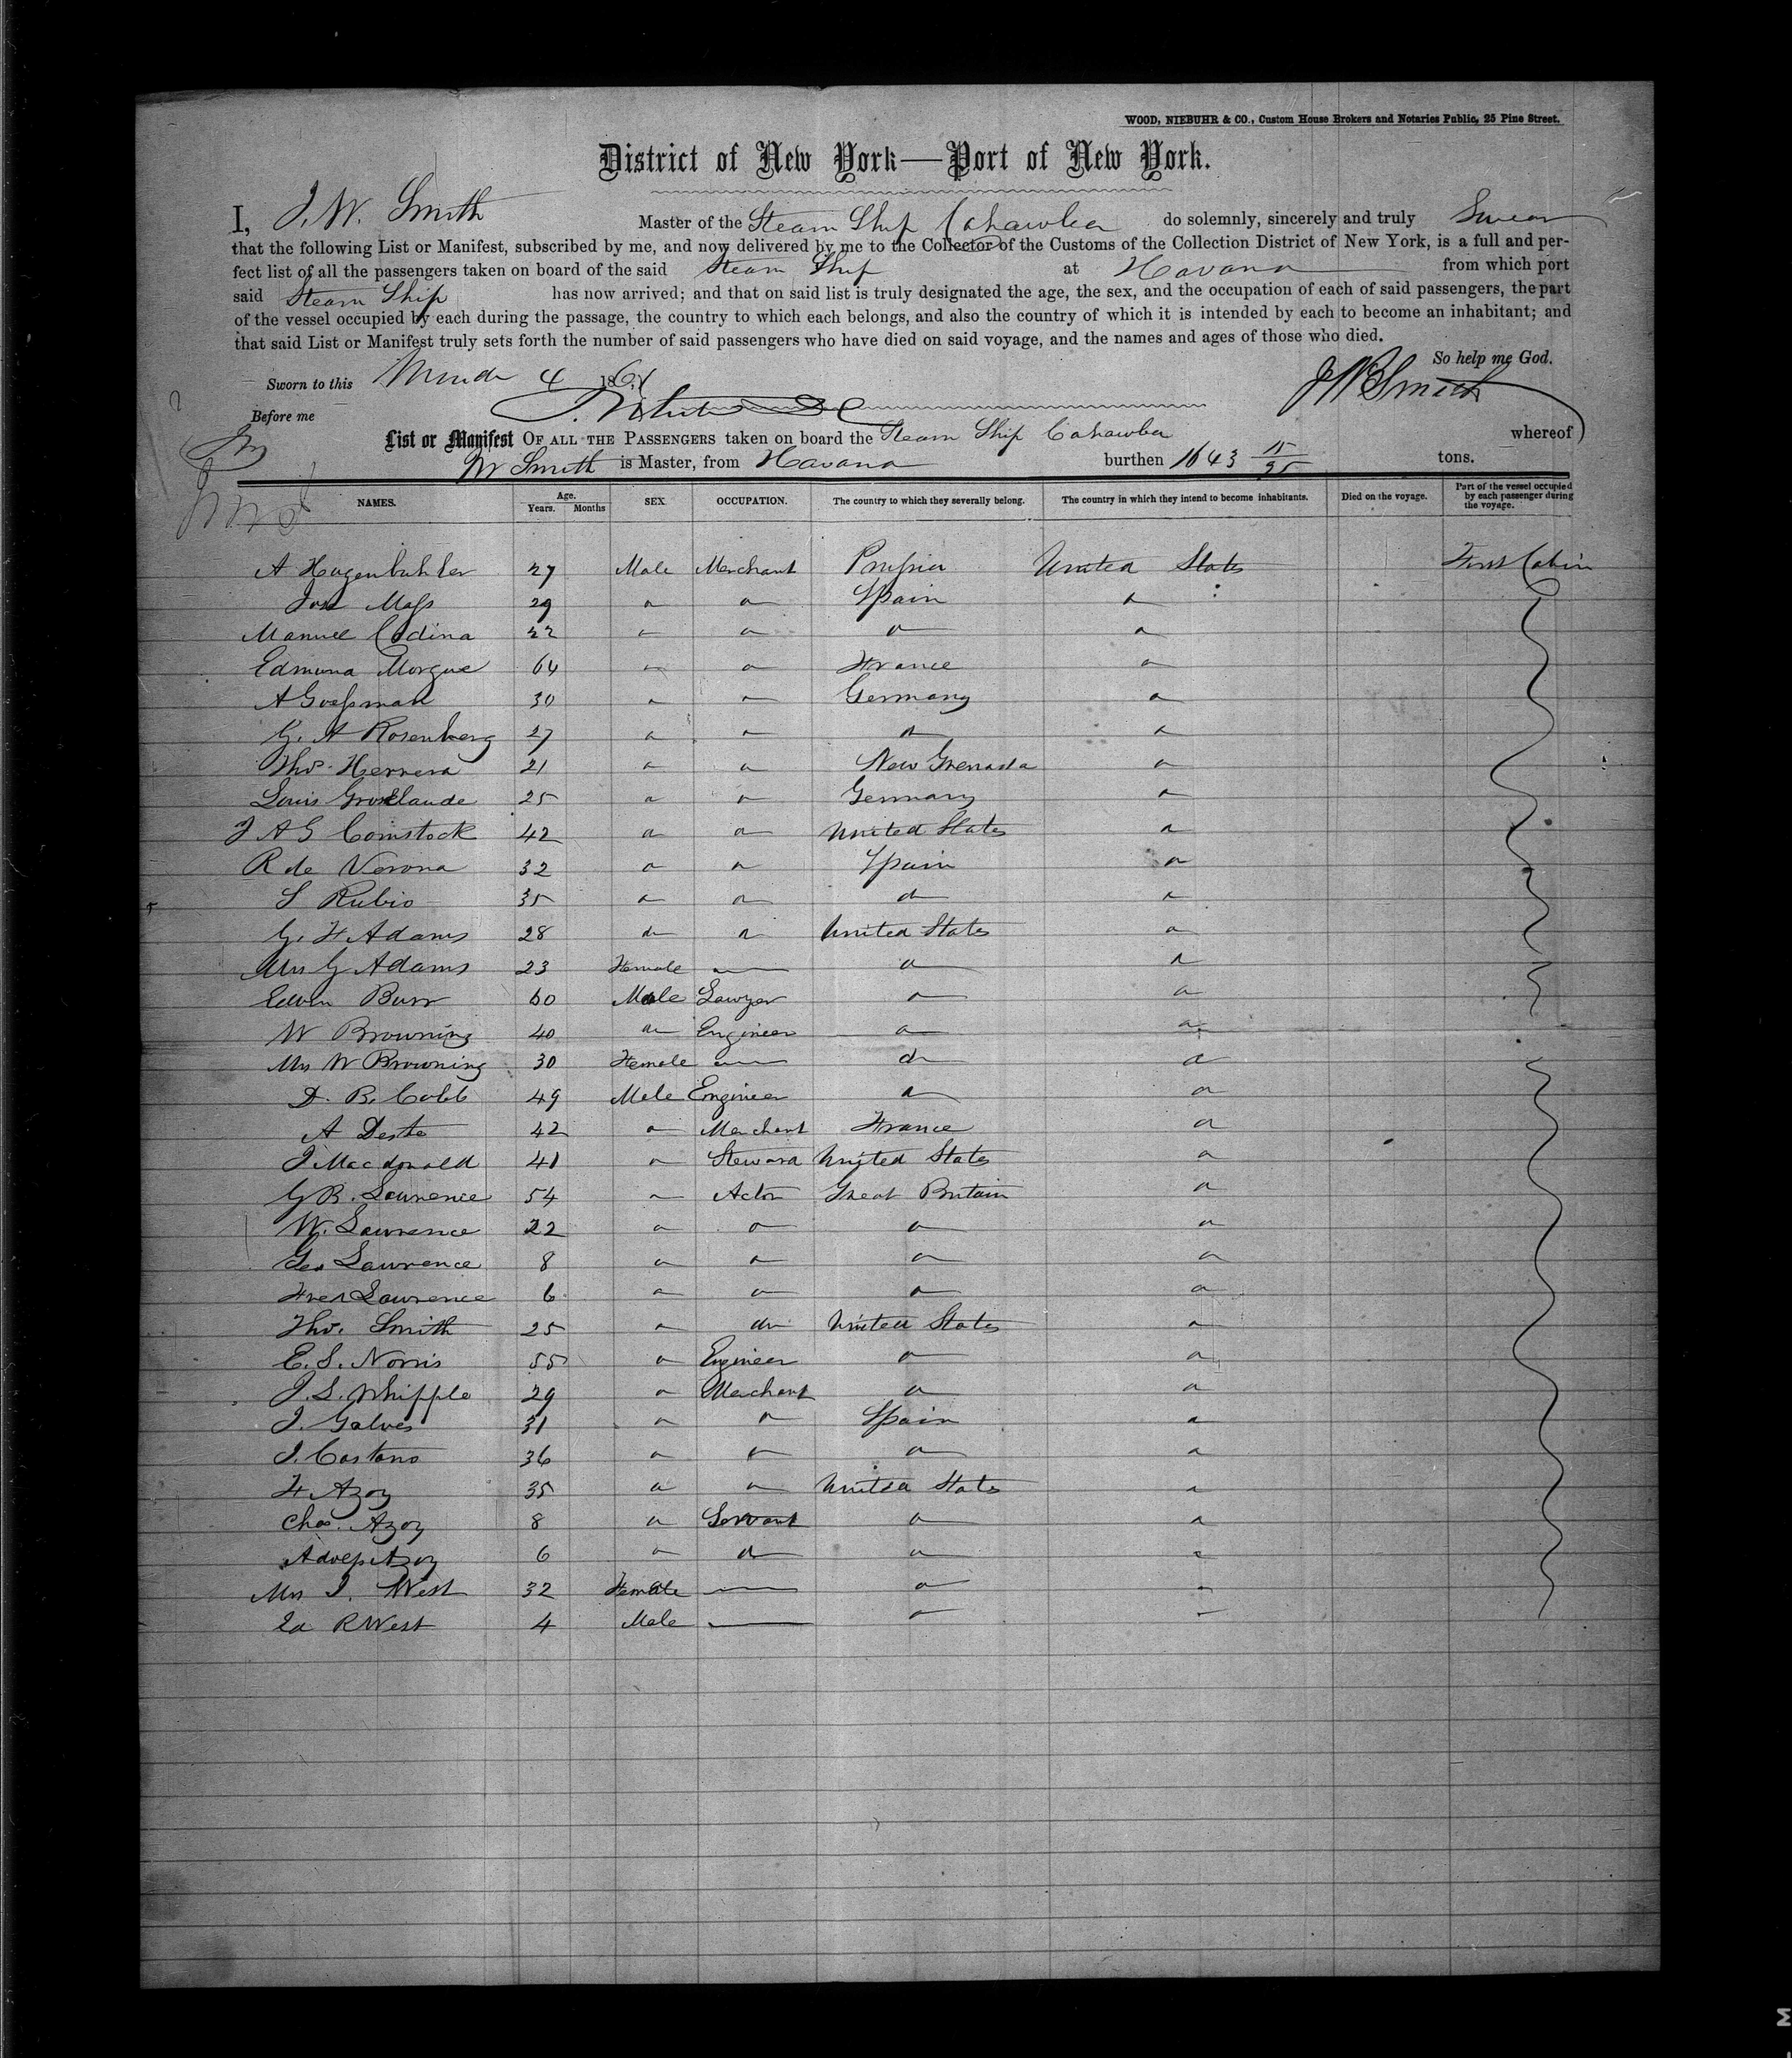 WOOD, NIEBUHR & CO., Custom House Brokers and Notaries Public, 25 Pine Street.
District of New York—Port of New York.
I, J. W. Smith Master of the Steam Ship Cahawba do solemnly, sincerely and truly Swear
that the following List or Manifest, subscribed by me, and now delivered by me to the Collector of the Customs of the Collection District of New York, is a full and per-
fect list of all the passengers taken on board of the said Steam Ship at Havana from which port
said Steam Ship has now arrived; and that on said list is truly designated the age, the sex, and the occupation of each of said passengers, the part
of the vessel occupied by each during the passage, the country to which each belongs, and also the country of which it is intended by each to become an inhabitant; and
that said List or Manifest truly sets forth the number of said passengers who have died on said voyage, and the names and ages of those who died.
So help me God.
Sworn to this March 4 1861 J W Smith
Before me
List or Manifest OF ALL THE PASSENGERS taken on board the Steam Ship Cahawba whereof
W Smith is Master, from Havana burthen 1643 15/95 tons.
NAMES. Age. Years. Months SEX OCCUPATION. The country to which they severally belong. The country in which they intend to become inhabitants. Died on the voyage. Part of the vessel occupied by each passenger during the voyage.
A Hugenbuhler 27 Male Merchant Prussia United States First Cabin
Jose Mass 29 " " Spain "
Manuel Codina 22 " " " "
Edmund Morgue 64 " " France "
A Goessman 30 " " Germany "
G. A Rosenberg 27 " " " "
Thos. Herrera 21 " " New Grenada "
Louis Grosclaude 25 " " Germany "
J A G Comstock 42 " " United States "
R de Verona 32 " " Spain "
S Rubio 35 " " " "
G. F Adams 28 " " United States "
Mrs G Adams 23 Female — " "
Edwin Burr 60 Male Lawyer " "
W Browning 40 " Engineer " "
Mrs W Browning 30 Female — " "
D. B. Cobb 49 Male Engineer " "
A Deste 42 " Merchant France "
J Macdonald 41 " Steward United States "
G B. Lawrence 54 " Actor Great Britain "
W. Lawrence 22 " " " "
Geo Lawrence 8 " " " "
Fred Lawrence 6 " " " "
Thos. Smith 25 " " United States "
E. S. Norris 55 " Engineer " "
J. S. Whipple 29 " Merchant " "
J. Galves 31 " " Spain "
J. Castano 36 " " " "
F Azoy 35 " " United States "
Chas. Azoy 8 " Servant " "
Adolp Azoy 6 " " " "
Mrs J. West 32 Female — " "
Ed R West 4 Male — " "